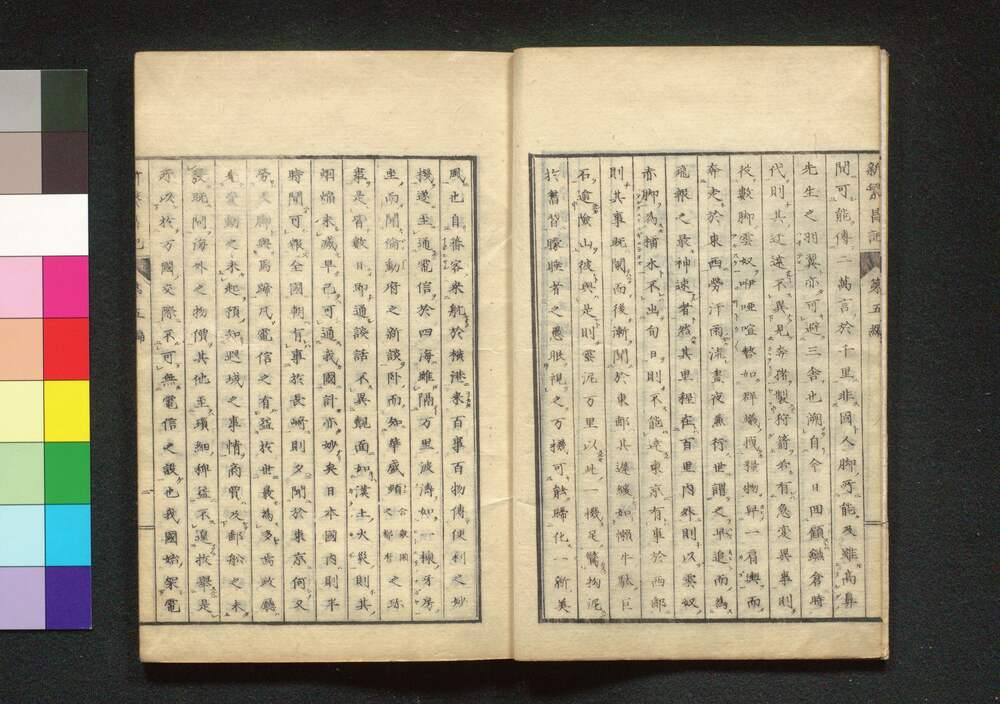 新繁昌記 第五編
間可能傳二萬言於千里非國人脚所能及雖高鼻
先生之羽翼亦可避三舍也溯自今日回顧鎌倉時
代則其辽遠不異見奔猪製狩箭若有急変異事則
役數脚雲奴咿啞喧嘩如群蟻掫擾物早一肩輿而
奔走於東西勞汗雨流晝夜兼行世謂之早追而為
飛報之最神速者然其里程在百里內外則以雲奴
赤脚為捕水不出旬日則不能達東京有事於西鄙
則其事既闌而後漸聞於東鄙其遲緩如懶牛駄巨
石逾險山彼與是則雲泥万里以此一機足驚拘泥
於舊習朦睡者之惡眠視之万機可能歸化一新美
風也自番客來航於横港來百事百物傳便利之妙
機遂至通電信於四海雖隔万里波濤如一棟牙房
坐而聞倫動府之新談卧而知華盛頓之跡
樂是實歡日即通談話不異覿面如漢土火災則其
烟焔未滅早已可通我國計亦妙矣日本國内則半
時間可報全國朝有事於長崎則夕聞於東京何又
勞人脚與馬蹄凡電信之有益於世最為多焉政廳
變動之未起預知邊城之事情商買及郵船之未
既聞海外之物價其他至瑣細裨益不遑枚舉是
所以於万國交際不可無電信之設也我國始架電